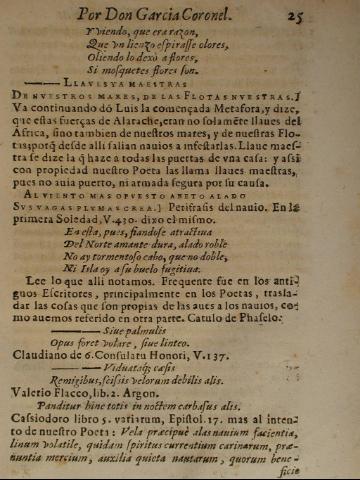 Por Don Garcia Coronel. 25
Y viendo, que era razon,
Que vn lienço espirasse olores,
Oliendo lo dexò a flores,
Si mosquetes flores son.
LLAVES YA MAESTRAS
DE NVESTROS MARES, DE LAS FLOTAS NVESTRAS.]
Va continuando dõ Luis la començada Metafora, y dize,
que estas fuerças de Alarache, eran no solamẽte llaues del
Africa, sino tambien de nuestros mares, y de nuestras Flo-
tas; porq̃ desde alli salian nauios a infestarlas. Llaue maes-
tra se dize la q̃ haze a todas las puertas de vna casa: y assi
con propiedad nuestro Poeta las llama llaues maestras,
pues no auia puerto, ni armada segura por su causa.
AL VIENTO MAS OPVESTO ABETO ALADO
SVS VAGAS PLVMAS CREA.] Perifrasis del nauio. En la
primera Soledad, V.430. dixo el mismo.
En esta, pues, fiandose atractiua
Del Norte amante dura, alado roble
No ay tormentoso cabo, que no doble,
Ni Isla oy a su buelo fugitiua.
Lee lo que alli notamos. Frequente fue en los anti-
guos Escritores, principalmente en los Poetas, trasla-
dar las cosas que son propias de las aues a los nauios, co-
mo auemos referido en otra parte. Catulo de Phaselo.
Siue palmulis
Opus foret volare, siue linteo.
Claudiano de 6. Consulatu Honori, V.137.
Viduataq; cæsis
Remigibus, scissis velorum debilis alis.
Valerio Flacco, lib.2. Argon.
Panditur hinc totis in noctem carbasus alis.
Cassiodoro libro 5. variarum, Epistol.17. mas al inten-
to de nuestro Poeta: Vela præcipuè alas nauium facientia,
linum volatile, quidam spiritus currentium carinarum, præ-
nuntia mercium, auxilia quieta nautarum, quorum bene-
ficio